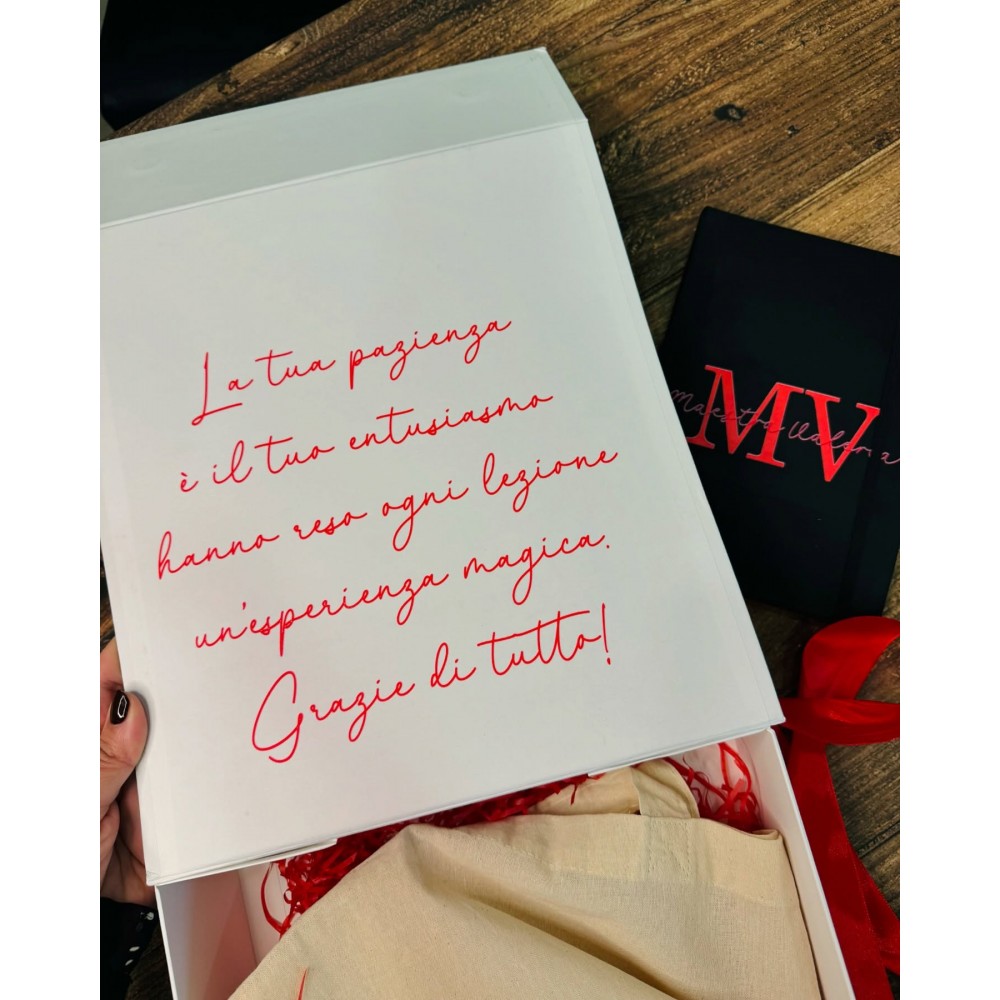 La tua pazienza
è il tuo entusiasmo
hanno reso ogni lezione
un'esperienza magica.
Grazie di tutto!
MV
Maestra